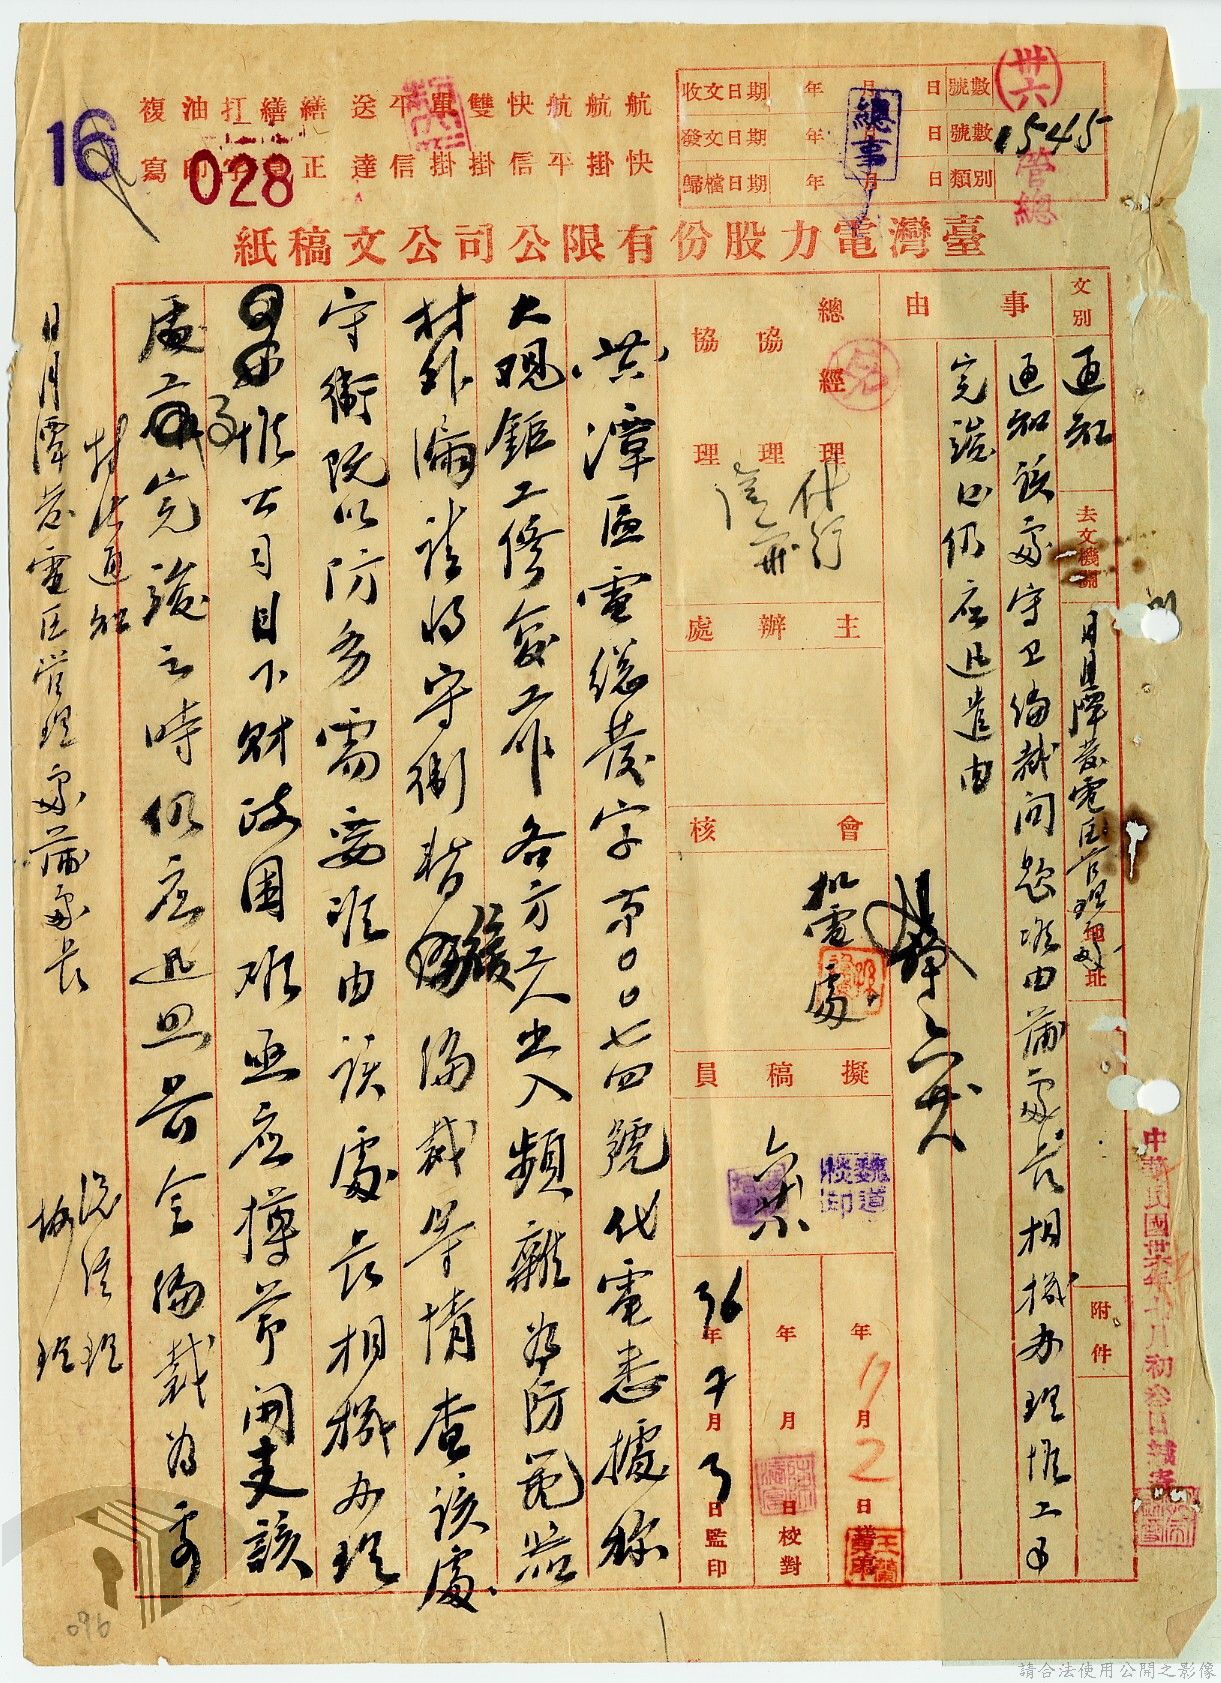 收文日期　年　月　日　號數
發文日期　年　月　日　號數　1545
歸檔日期　年　月　日　類別
管總
總事
航航航快雙單平送繕繕打油複
快掛平信掛掛信達正
寫
028
16
臺灣電力股份有限公司公文稿紙
文別
通知
去文機關
日月潭發電區管理處
地址
附件
事由
通知該處守衛編裁問題准由蒲處長相機办理惟工事
完竣后仍应迅遣由
總經理
協理
協理
代行
主辦處
會核
機電處
擬稿員
魏道
年11月2日
年　月　日校對
36年7月3日監印
中華民國卅年十月初叁日
潭區電總發字第00七四號代電悉據稱
大觀鉅工修侖工作各方工人出入頻雜為防器
材外漏請將守衛暫緩編裁等情查該處
守衛既以防务需要准由該處長相機办理
惟公司目下財政困难亟应撙节開支該
處工事完竣之時仍应迅照前令編裁為要
特此通知
日月潭發電區管理處蒲處長
總經理
協理
096
請合法使用公開之影像